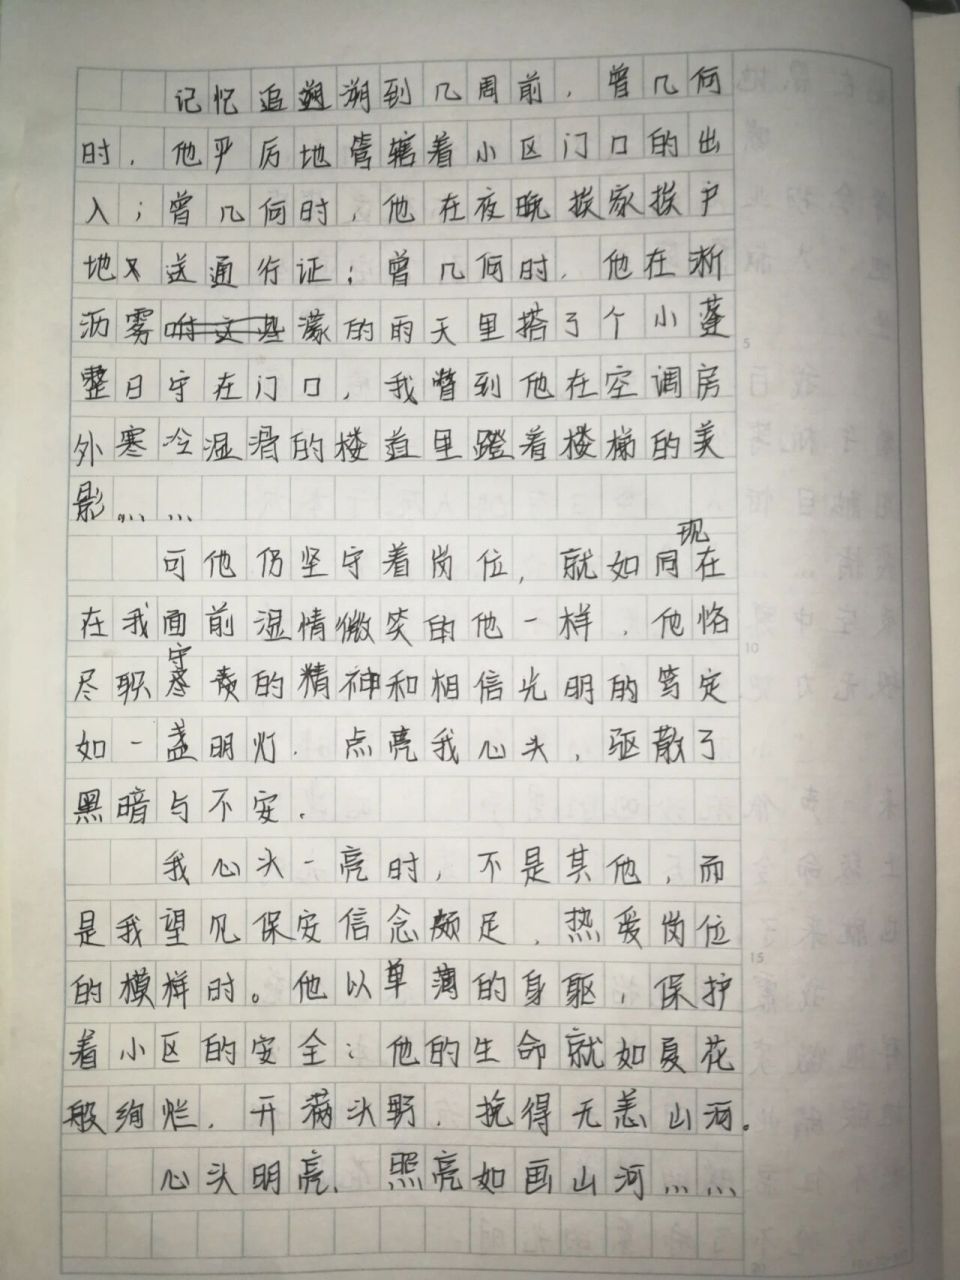 记忆追溯到几周前，曾几何
时，他严厉地管辖着小区门口的出
入；曾几何时，他在夜晚挨家挨户
地送通行证；曾几何时，他在淅
沥雾濛的雨天里搭了个小蓬
整日守在门口，我瞥到他在空调房
外寒冷湿滑的楼道里蹬着楼梯的美
影……
可他仍坚守着岗位，就如同现在
在我面前湿情微笑的他一样，他恪
尽职守责的精神和相信光明的笃定
如一盏明灯，点亮我心头，驱散了
黑暗与不安．
我心头一亮时，不是其他，而
是我望见保安信念颇足，热爱岗位
的模样时。他以单薄的身躯，保护
着小区的安全；他的生命就如夏花
般绚烂，开满头野，挽得无恙山河。
心头明亮、照亮如画山河……